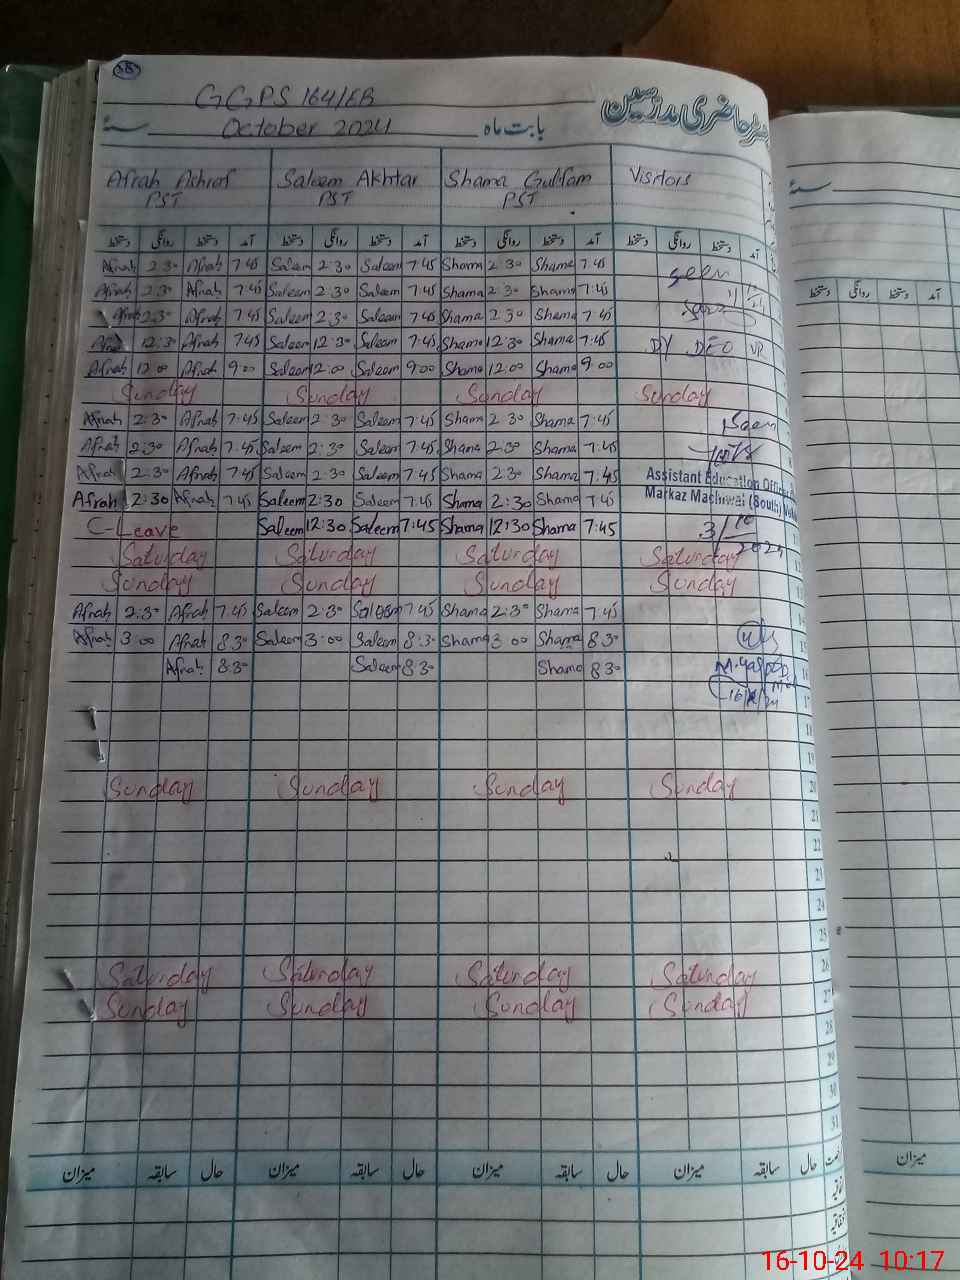 38
GGPS 164/EB
رجسٹر حاضری مدرسین
October 2024 بابت ماہ
Afrah Ashraf Saleem Akhtar Shama Gulfam Visitors
PST PST PST
دستخط روانگی دستخط آمد دستخط روانگی دستخط آمد دستخط روانگی دستخط آمد دستخط روانگی دستخط آمد
Afrah 2:30 Afrah 7:45 Saleem 2:30 Saleem 7:45 Shama 2:30 Shama 7:45 Seen
Afrah 2:30 Afrah 7:45 Saleem 2:30 Saleem 7:45 Shama 2:30 Shama 7:45
Afrah 2:30 Afrah 7:45 Saleem 2:30 Saleem 7:45 Shama 2:30 Shama 7:45
Afrah 12:30 Afrah 7:45 Saleem 12:30 Saleem 7:45 Shama 12:30 Shama 7:45 DY DEO
Afrah 12:00 Afrah 9:00 Saleem 12:00 Saleem 9:00 Shama 12:00 Shama 9:00
Sunday Sunday Sunday Sunday
Afrah 2:30 Afrah 7:45 Saleem 2:30 Saleem 7:45 Shama 2:30 Shama 7:45 Seen
Afrah 2:30 Afrah 7:45 Saleem 2:30 Saleem 7:45 Shama 2:30 Shama 7:45
Afrah 2:30 Afrah 7:45 Saleem 2:30 Saleem 7:45 Shama 2:30 Shama 7:45 Assistant Education Officer
Afrah 2:30 Afrah 7:45 Saleem 2:30 Saleem 7:45 Shama 2:30 Shama 7:45 Markaz Machiwal (South)
C-Leave Saleem 12:30 Saleem 7:45 Shama 12:30 Shama 7:45 3/10 11
Saturday Saturday Saturday Saturday 2024 12
Sunday Sunday Sunday Sunday 13
Afrah 2:30 Afrah 7:45 Saleem 2:30 Saleem 7:45 Shama 2:30 Shama 7:45 14
Afrah 3:00 Afrah 8:30 Saleem 3:00 Saleem 8:30 Shama 3:00 Shama 8:30 15
Afrah 8:30 Saleem 8:30 Shama 8:30 16
17
18
19
Sunday Sunday Sunday Sunday 20
21
22
23
24
25
Saturday Saturday Saturday Saturday 26
Sunday Sunday Sunday Sunday 27
28
29
30
31
میزان سابقہ حال میزان سابقہ حال میزان سابقہ حال میزان سابقہ حال
دستخط روانگی دستخط آمد
میزان
16-10-24 10:17